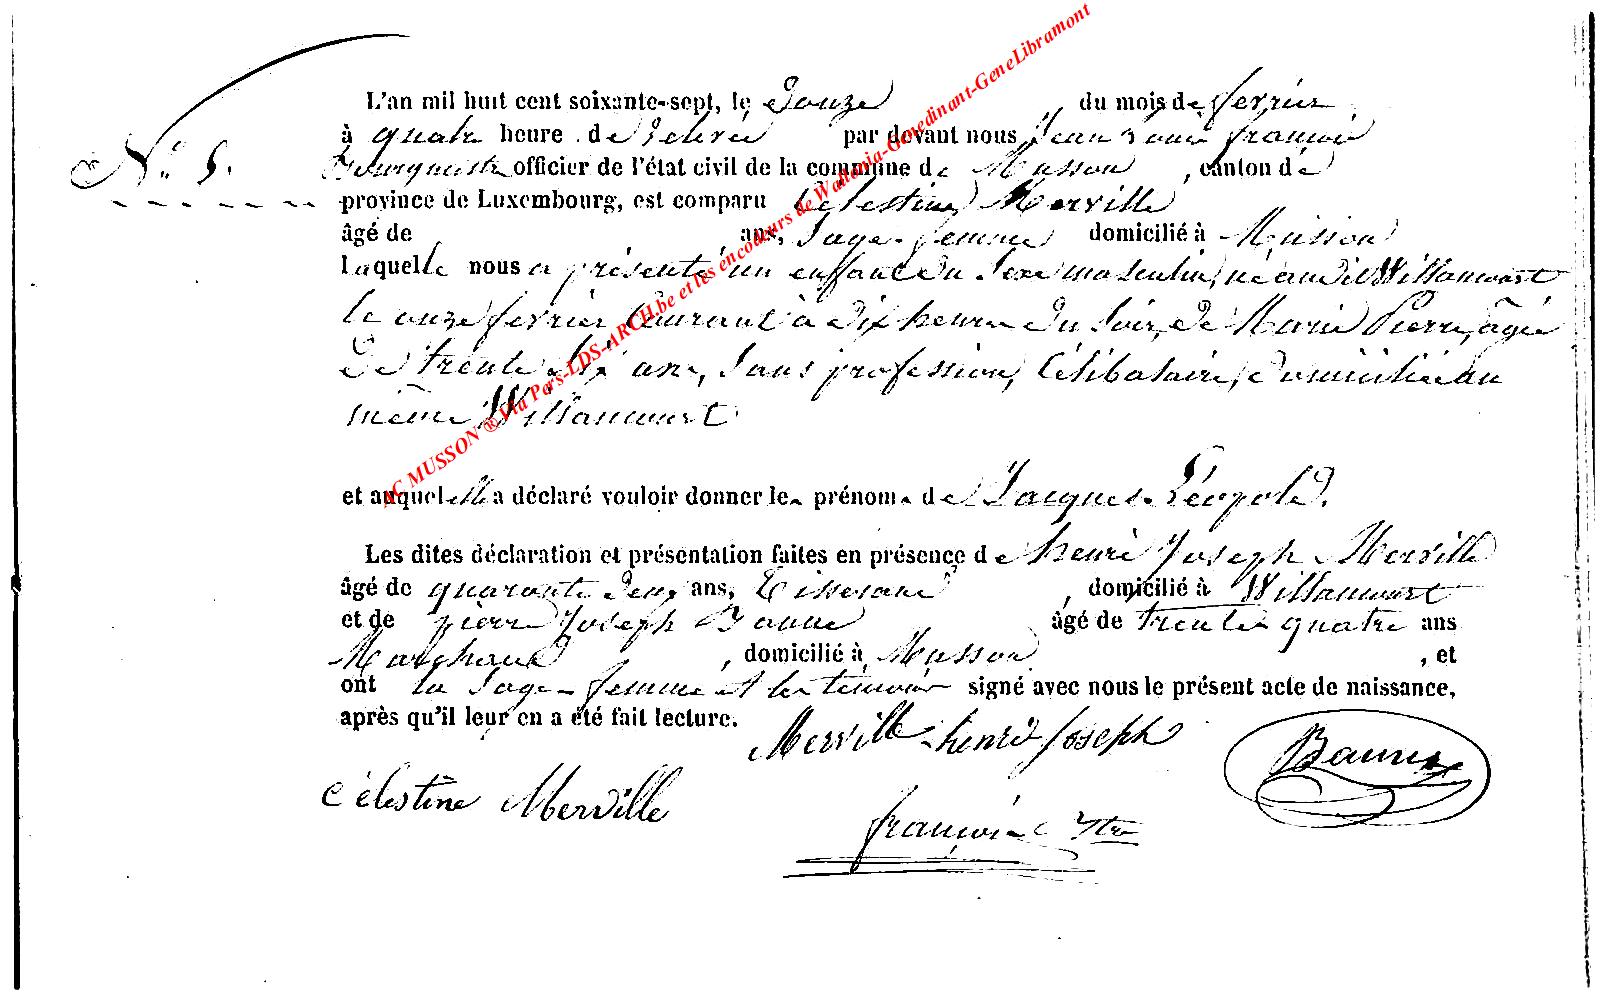 L'an mil huit cent soixante-sept, le Douze du mois de fevrier
à quatre heure de relevée par devant nous Jean Louis françois
N° 5. Bourguestre officier de l'état civil de la commune de Musson, canton de
province de Luxembourg, est comparu Célestine Merville
âgé de ans, Sage-femme domicilié à Musson
laquelle nous a présenté un enfant du Sexe masculin, né au dit Willancourt
le onze fevrier Courant à dix heures du Soir, de Marie Pierre, âgée
de trente six ans, Sans profession, Célibataire, domiciliée au
même Willancourt
et auquel elle a déclaré vouloir donner les prénoms de Jacques-Léopold.
Les dites déclaration et présentation faites en présence de henri Joseph Merville
âgé de quarante deux ans, Tisserand, domicilié à Willancourt
et de pierre Joseph Baune âgé de trente quatre ans
Marchand, domicilié à Musson, et
ont la Sage-femme et les témoins signé avec nous le présent acte de naissance,
après qu'il leur en a été fait lecture.
Merville henri Joseph
Baune
Célestine Merville
françois
AC MUSSON ® Via Pers-LDS-ARCH.be et les encodeurs de Wallonia-Genedinant-GeneLibramont